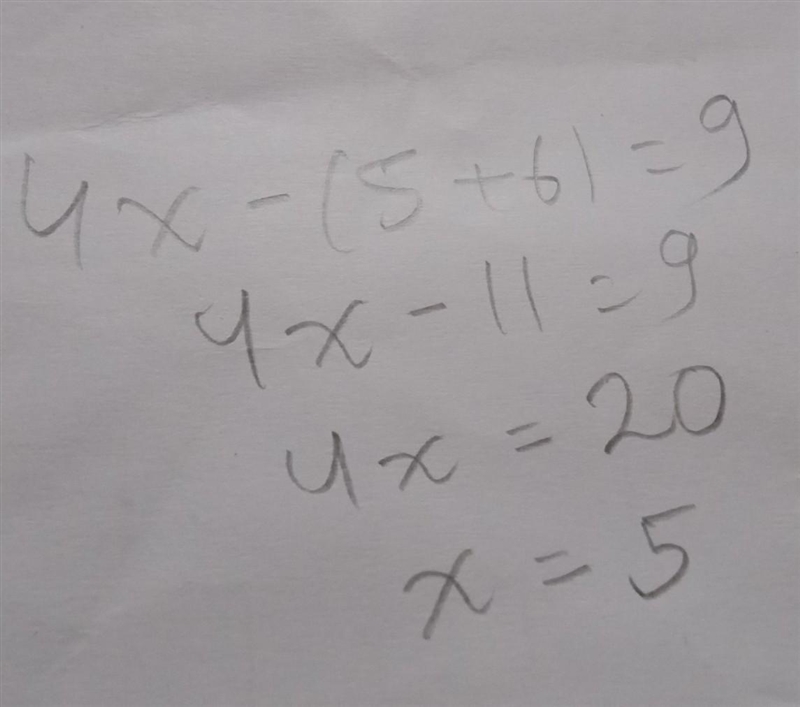 4x - (5 + 6) = 9
4x - 11 = 9
4x = 20
x = 5